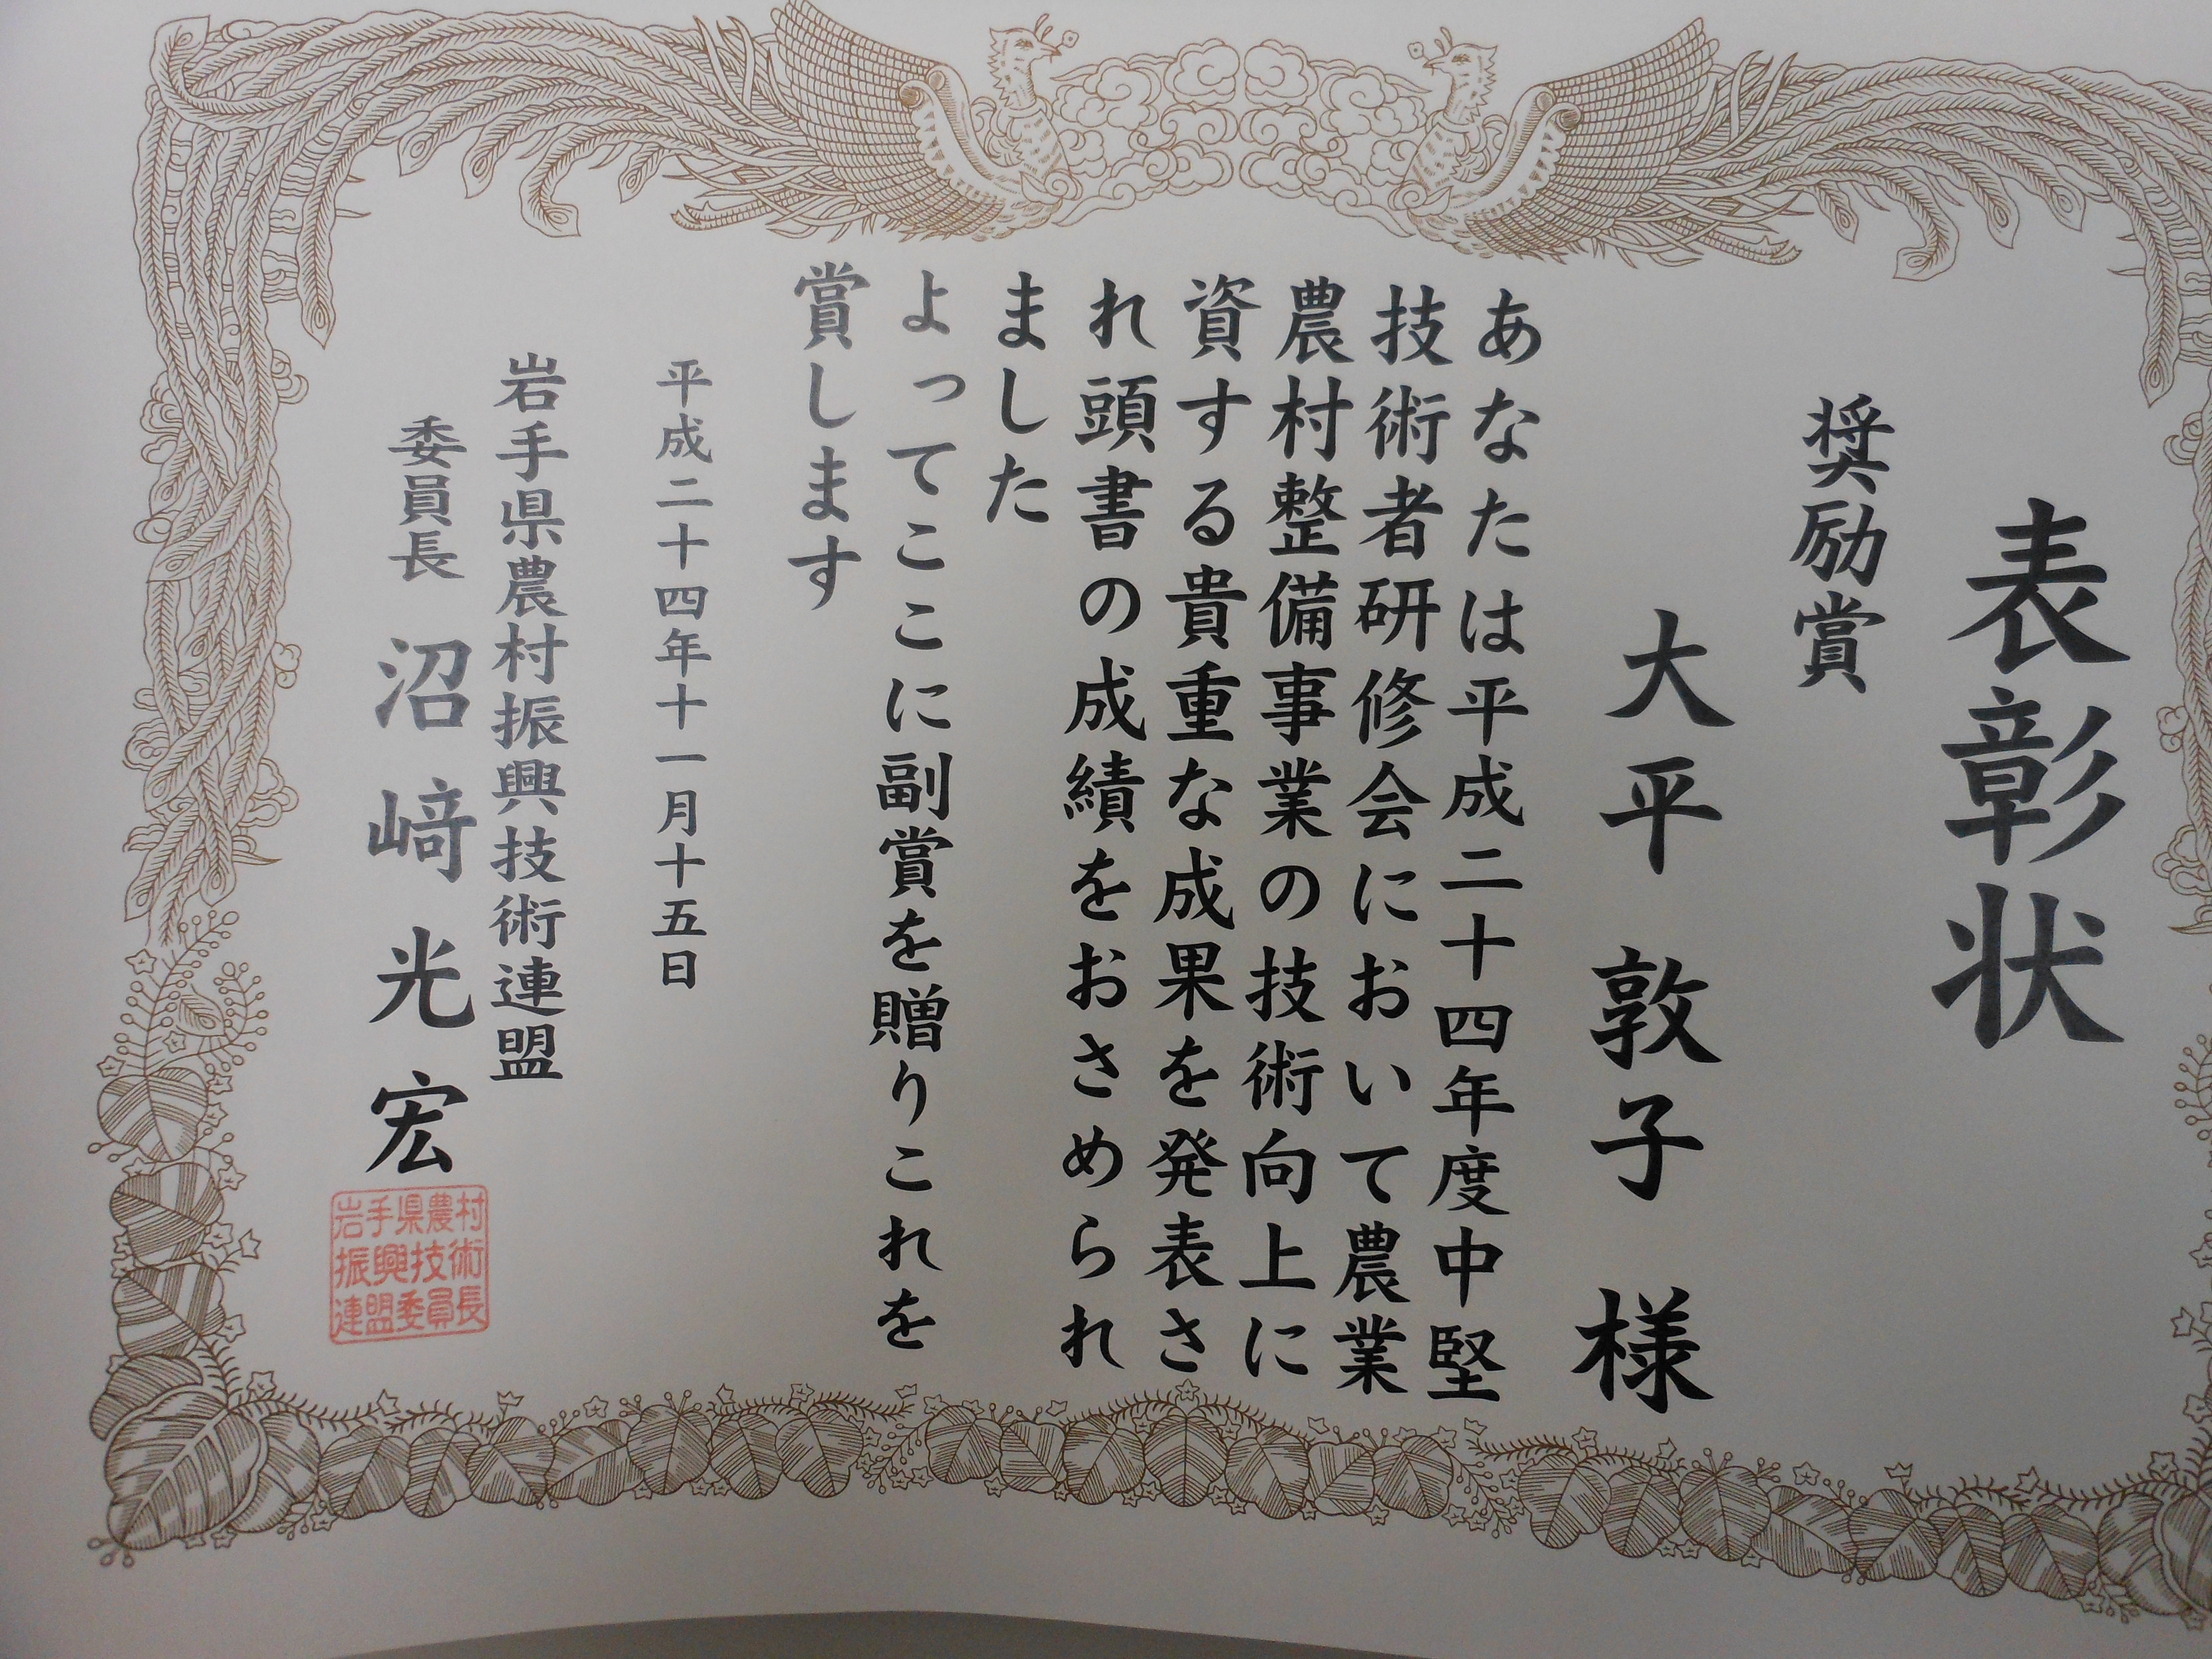 表彰状
奨励賞
大平 敦子 様
あなたは平成二十四年度中堅
技術者研修会において農業
農村整備事業の技術向上に
資する貴重な成果を発表さ
れ頭書の成績をおさめられ
ました
よってここに副賞を贈りこれを
賞します
平成二十四年十一月十五日
岩手県農村振興技術連盟
委員長 沼﨑光宏
岩手県農村
振興技術
連盟委員長